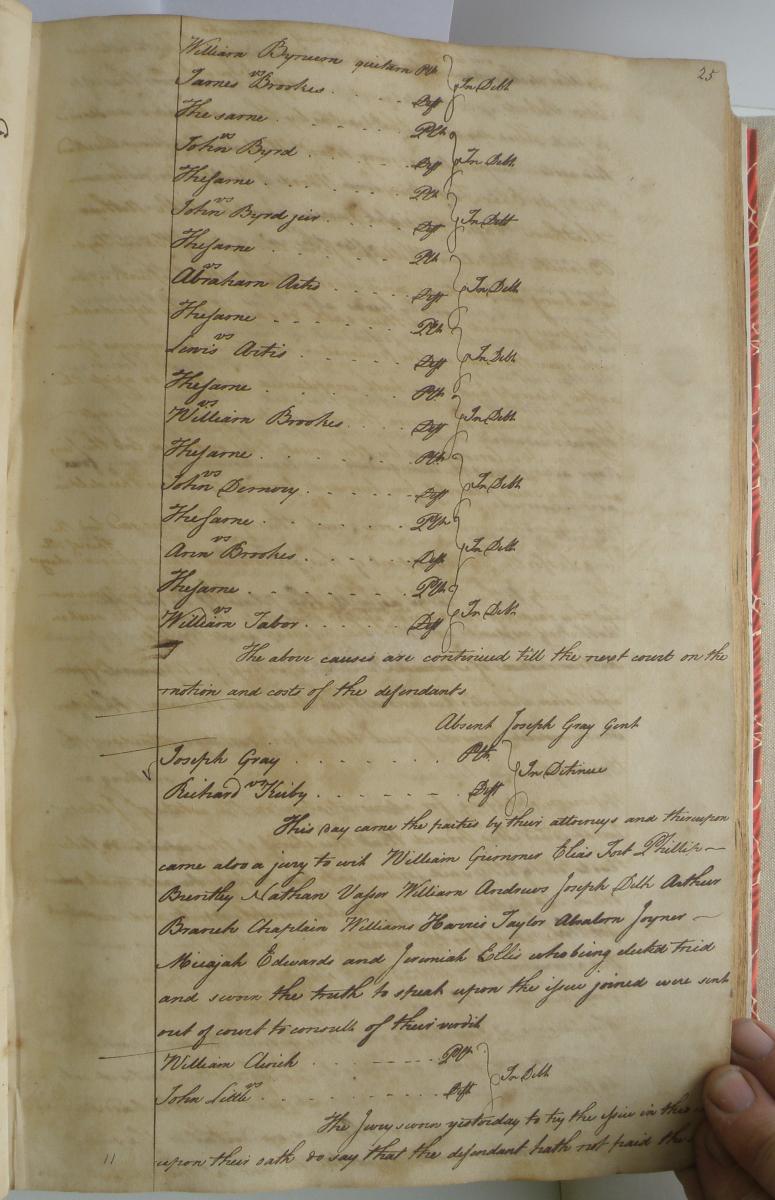 25
William Bynum quitam Plt
vs
James Brookes Deft
In Debt
The same Plt
vs
John Byrd Deft
In Debt
The same Plt
vs
John Byrd junr Deft
In Debt
The same Plt
vs
Abraham Artis Deft
In Debt
The same Plt
vs
Lewis Artis Deft
In Debt
The same Plt
vs
William Brookes Deft
In Debt
The same Plt
vs
John Demory Deft
In Debt
The same Plt
vs
Brookes Deft
In Debt
The same Plt
vs
William Tabor Deft
In Debt
The above causes are continued till the next court on the
motion and costs of the defendants
Absent Joseph Gray Gent
Joseph Gray Plt
vs
Richard Kirby Deft
In Detinue
This day came the parties by their attorneys and thereupon
came also a jury to wit William Grimmer Elias Fort Phillip
Brantley Nathan Vasser William Andrews Joseph Delk Arthur
Branch Chaplain Williams Harris Taylor Absalom Joyner
Micajah Edwards and Jeremiah Ellis who being elected tried
and sworn the truth to speak upon the issue joined were sent
out of court to consult of their verdit
William Plt
vs
John Little Deft
In Debt
The Jury sworn yesterday to try the issue in this
upon their oath do say that the defendant hath not paid the
11